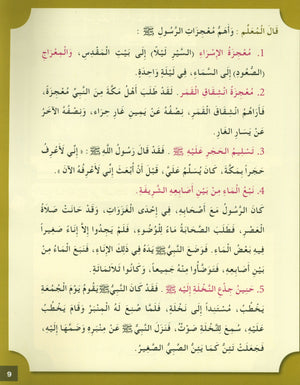 قَالَ الْمُعَلِّمُ : وَأَهَمُّ مُعْجِزَاتِ الرَّسُولِ ﷺ :
1. مُعْجِزَةُ الْإِسْرَاءِ (السَّيْرِ لَيْلًا) إِلَى بَيْتِ الْمَقْدِسِ، وَالْمِعْرَاجِ
(الصُّعُودِ) إِلَى السَّمَاءِ، فِي لَيْلَةٍ وَاحِدَةٍ.
2. مُعْجِزَةُ انْشِقَاقِ الْقَمَرِ. لَقَدْ طَلَبَ أَهْلُ مَكَّةَ مِنَ النَّبِيِّ مُعْجِزَةً،
فَأَرَاهُمُ انْشِقَاقَ الْقَمَرِ، نِصْفُهُ عَنْ يَمِينِ غَارِ حِرَاءَ، وَنِصْفُهُ الْآخَرُ
عَنْ يَسَارِ الْغَارِ.
3. تَسْلِيمُ الْحَجَرِ عَلَيْهِ ﷺ . فَقَدْ قَالَ رَسُولُ اللَّهِ ﷺ : « إِنِّي لَأَعْرِفُ
حَجَرًا بِمَكَّةَ، كَانَ يُسَلِّمُ عَلَيَّ، قَبْلَ أَنْ أُبْعَثَ إِنِّي لَأَعْرِفُهُ الْآنَ ».
4. نَبْعُ الْمَاءِ مِنْ بَيْنِ أَصَابِعِهِ الشَّرِيفَةِ.
كَانَ الرَّسُولُ مَعَ أَصْحَابِهِ، فِي إِحْدَى الْغَزَوَاتِ، وَقَدْ حَانَتْ صَلَاةُ
الْعَصْرِ، فَطَلَبَ الصَّحَابَةُ مَاءً لِلْوُضُوءِ، فَلَمْ يَجِدُوا إِلَّا إِنَاءً صَغِيرًا
فِيهِ بَعْضُ الْمَاءِ. فَوَضَعَ النَّبِيُّ ﷺ يَدَهُ فِي ذٰلِكَ الْإِنَاءِ، فَنَبَعَ الْمَاءُ مِنْ
بَيْنِ أَصَابِعِهِ، فَتَوَضَّأُوا مِنْهُ جَمِيعًا، وَكَانُوا ثَلَاثَمِائَةٍ.
5. حَنِينُ جِذْعِ النَّخْلَةِ إِلَيْهِ ﷺ . كَانَ النَّبِيُّ ﷺ يَقُومُ يَوْمَ الْجُمُعَةِ
يَخْطُبُ، مُسْتَنِدًا إِلَى نَخْلَةٍ، فَلَمَّا صُنِعَ لَهُ الْمِنْبَرُ وَقَامَ يَخْطُبُ
عَلَيْهِ، سُمِعَ لِلنَّخْلَةِ صَوْتٌ، فَنَزَلَ النَّبِيُّ ﷺ عَنْ مِنْبَرِهِ وَضَمَّهَا إِلَيْهِ،
فَجَعَلَتْ تَئِنُّ كَمَا يَئِنُّ الصَّبِيُّ الصَّغِيرُ.
9